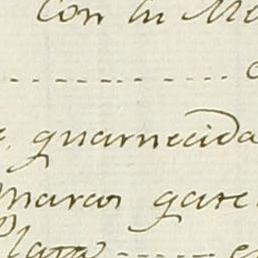 Con su Me
guarnecida
marcos gare
Plata